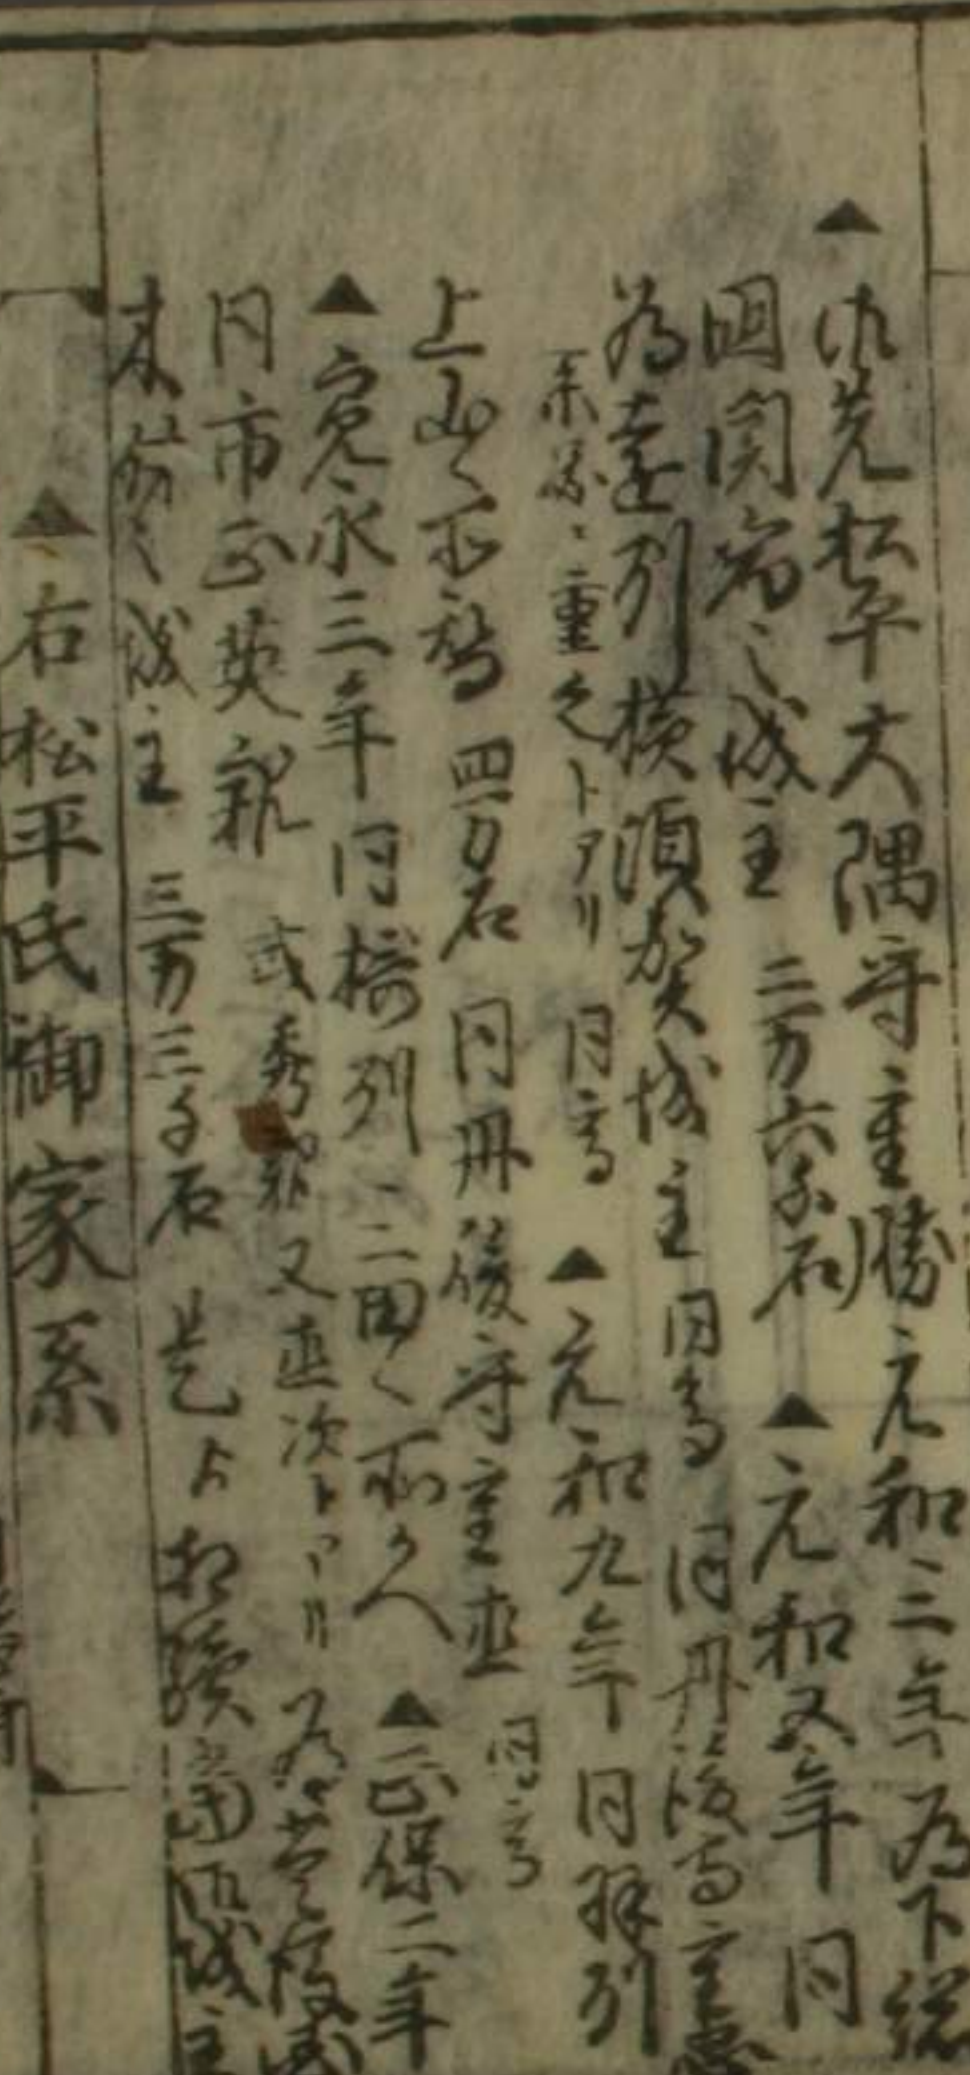 ▲御先松平大隅守重勝元和三年為下総
国関宿之城主 二万六千石 ▲元和五年 同
為遠列横須賀城主 同高 同丹後守重忠
系図ニ重之トアリ 同高 ▲元和九年 同羽列
上山之所替 四万石 同丹後守重直 同高
▲寛永三年同摂列ニ三田之所かへ ▲正保二年
同市正英親 或秀親又直次トアリ 為豊後国
木付之城主 三万三千石 是ゟ相続而御城主
▲右松平氏御家系